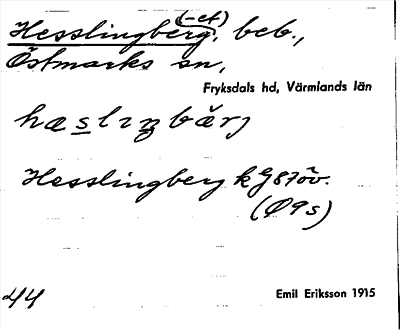 Hesslingberg(-et), beb.,
Östmarks sn,
Fryksdals hd, Värmlands län
hæslıŋbærj
Hesslingberg k G87öv.
(Ø9s)
44
Emil Eriksson 1915